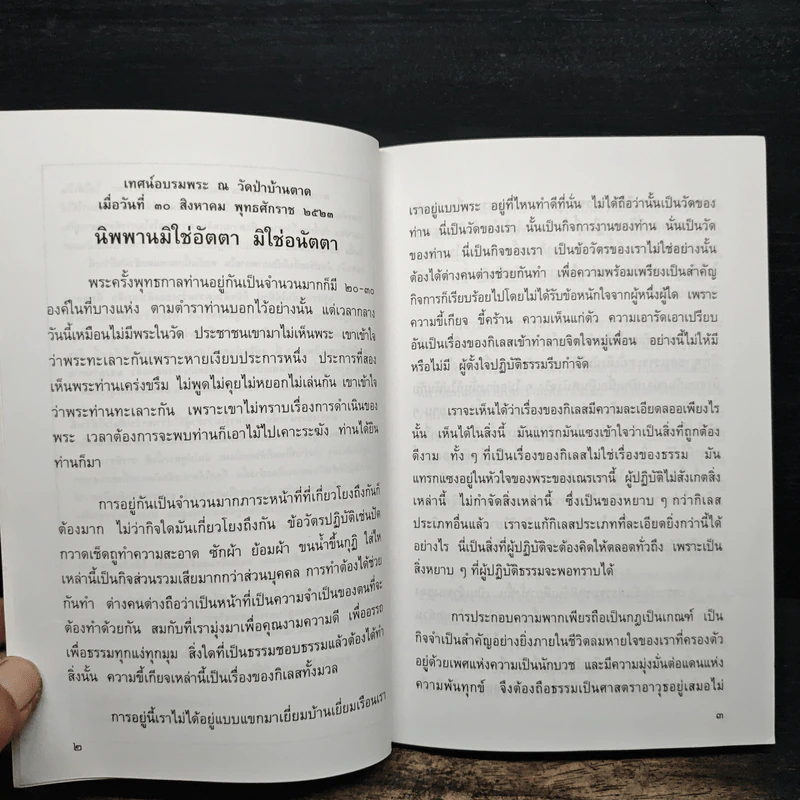 เทศน์อบรมพระ ณ วัดป่าบ้านตาด
เมื่อวันที่ ๓๐ สิงหาคม พุทธศักราช ๒๕๒๓
นิพพานมิใช่อัตตา มิใช่อนัตตา
พระครั้งพุทธกาลท่านอยู่กันเป็นจำนวนมากก็มี ๒๐-๓๐
องค์ในที่บางแห่ง ตามตำราท่านบอกไว้อย่างนั้น แต่เวลากลาง
วันนี้เหมือนไม่มีพระในวัด ประชาชนเขามาไม่เห็นพระ เขาเข้าใจ
ว่าพระทะเลาะกันเพราะหายเงียบประการหนึ่ง ประการที่สอง
เห็นพระท่านเคร่งขรึม ไม่พูดไม่คุยไม่หยอกไม่เล่นกัน เขาเข้าใจ
ว่าพระท่านทะเลาะกัน เพราะเขาไม่ทราบเรื่องการดำเนินของ
พระ เวลาต้องการจะพบท่านก็เอาไม้ไปเคาะระฆัง ท่านได้ยิน
ท่านก็มา
การอยู่กันเป็นจำนวนมากภาระหน้าที่ที่เกี่ยวโยงถึงกันก็
ต้องมาก ไม่ว่ากิจใดมันเกี่ยวโยงถึงกัน ข้อวัตรปฏิบัติเช่นปัด
กวาดเช็ดถูทำความสะอาด ซักผ้า ย้อมผ้า ขนน้ำขึ้นกุฏิ ใส่ไห
เหล่านี้เป็นกิจส่วนรวมเสียมากกว่าส่วนบุคคล การทำต้องได้ช่วย
กันทำ ต่างคนต่างถือว่าเป็นหน้าที่เป็นความจำเป็นของตนที่จะ
ต้องทำด้วยกัน สมกับที่เรามุ่งมาเพื่อคุณงามความดี เพื่ออรรถ
เพื่อธรรมทุกแง่ทุกมุม สิ่งใดที่เป็นธรรมชอบธรรมแล้วต้องได้ทำ
สิ่งนั้น ความขี้เกียจเหล่านี้เป็นเรื่องของกิเลสทั้งมวล
การอยู่นี้เราไม่ได้อยู่แบบแขกมาเยี่ยมบ้านเยี่ยมเรือนเรา
๒
เราอยู่แบบพระ อยู่ที่ไหนทำดีที่นั่น ไม่ได้ถือว่านั้นเป็นวัดของ
ท่าน นี่เป็นวัดของเรา นั้นเป็นกิจการงานของท่าน นั่นเป็นวัด
ของท่าน นี่เป็นกิจของเรา เป็นข้อวัตรของเราไม่ใช่อย่างนั้น
ต้องได้ต่างคนต่างช่วยกันทำ เพื่อความพร้อมเพรียงเป็นสำคัญ
กิจการก็เรียบร้อยไปโดยไม่ได้รับข้อหนักใจจากผู้หนึ่งผู้ใด เพราะ
ความขี้เกียจ ขี้คร้าน ความเห็นแก่ตัว ความเอารัดเอาเปรียบ
อันเป็นเรื่องของกิเลสเข้าทำลายจิตใจหมู่เพื่อน อย่างนี้ไม่ให้มี
หรือไม่มี ผู้ตั้งใจปฏิบัติธรรมรีบกำจัด
เราจะเห็นได้ว่าเรื่องของกิเลสมีความละเอียดลออเพียงไร
นั้น เห็นได้ในสิ่งนี้ มันแทรกมันแซงเข้าใจว่าเป็นสิ่งที่ถูกต้อง
ดีงาม ทั้ง ๆ ที่เป็นเรื่องของกิเลสไม่ใช่เรื่องของธรรม มัน
แทรกแซงอยู่ในหัวใจของพระของเณรเรานี้ ผู้ปฏิบัติไม่สังเกตสิ่ง
เหล่านี้ ไม่กำจัดสิ่งเหล่านี้ ซึ่งเป็นของหยาบ ๆ กว่ากิเลส
ประเภทอื่นแล้ว เราจะแก้กิเลสประเภทที่ละเอียดยิ่งกว่านี้ได้
อย่างไร นี่เป็นสิ่งที่ผู้ปฏิบัติจะต้องคิดให้ตลอดทั่วถึง เพราะเป็น
สิ่งหยาบ ๆ ที่ผู้ปฏิบัติธรรมจะพอทราบได้
การประกอบความพากเพียรถือเป็นกฎเป็นเกณฑ์ เป็น
กิจจำเป็นสำคัญอย่างยิ่งภายในชีวิตลมหายใจของเราที่ครองตัว
อยู่ด้วยเพศแห่งความเป็นนักบวช และมีความมุ่งมั่นต่อแดนแห่ง
ความพ้นทุกข์ จึงต้องถือธรรมเป็นศาสตราอาวุธอยู่เสมอไม่
๓